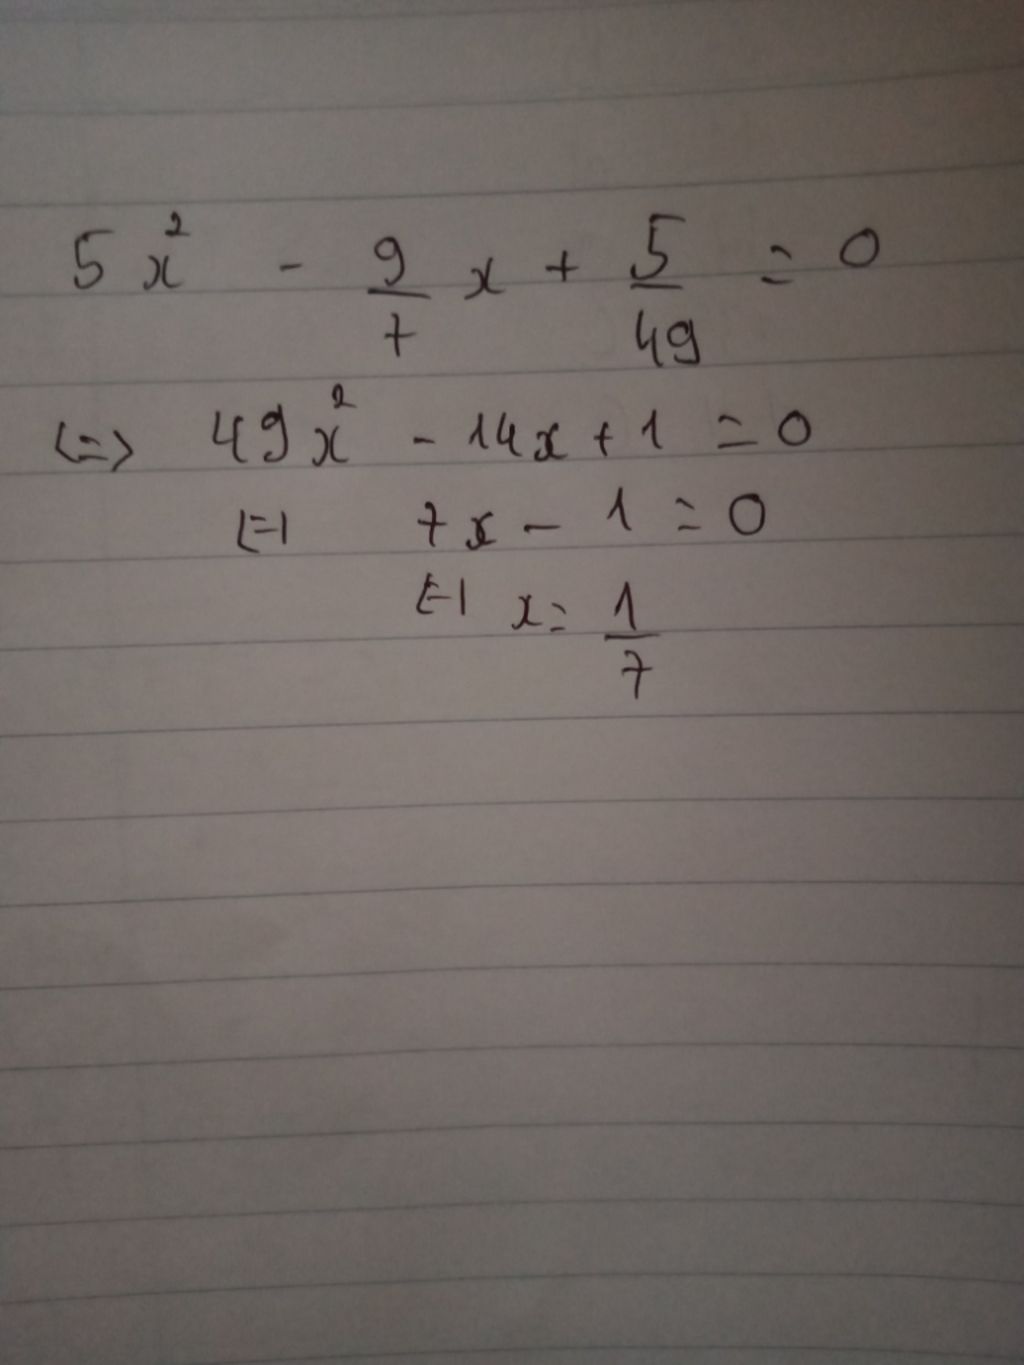 5x² - 9/7 x + 5/49 = 0
<=> 49x² - 14x + 1 = 0
<=> 7x - 1 = 0
<=> x = 1/7